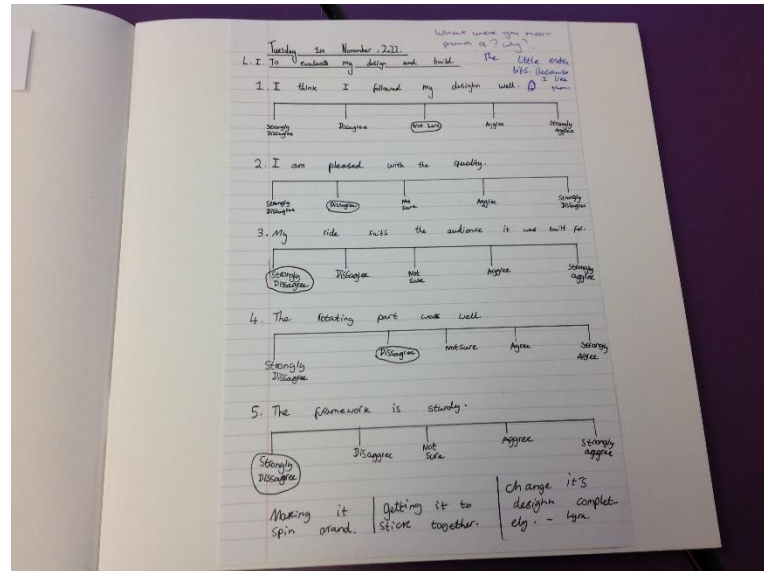 What were you most
proud of? why?
Tuesday 1st November. 2022.
L.I. To evaluate my design and build
The Little extra
bits. Because
I like
them
1. I think I followed my desighn well.
Strongly Dissagree Dissagree Not Sure Aggree Strongly Aggree
2. I am pleased with the quality.
Strongly Dissagree Dissagree Not Sure Aggree Strongly Dissagree
3. My ride suits the audience it was built for.
Strongly Dissagree Dissagree Not Sure Aggree Strongly aggree
4. The rotating part works well
Strongly Dissagree Dissagree Not Sure Agree Strongly Agree
5. The framework is sturdy.
Strongly Dissagree Disaggree Not Sure Aggree Strongly aggree
Making it
spin arand.
getting it to
stick together.
change it's
desighn complet-
ely. - Lyra.